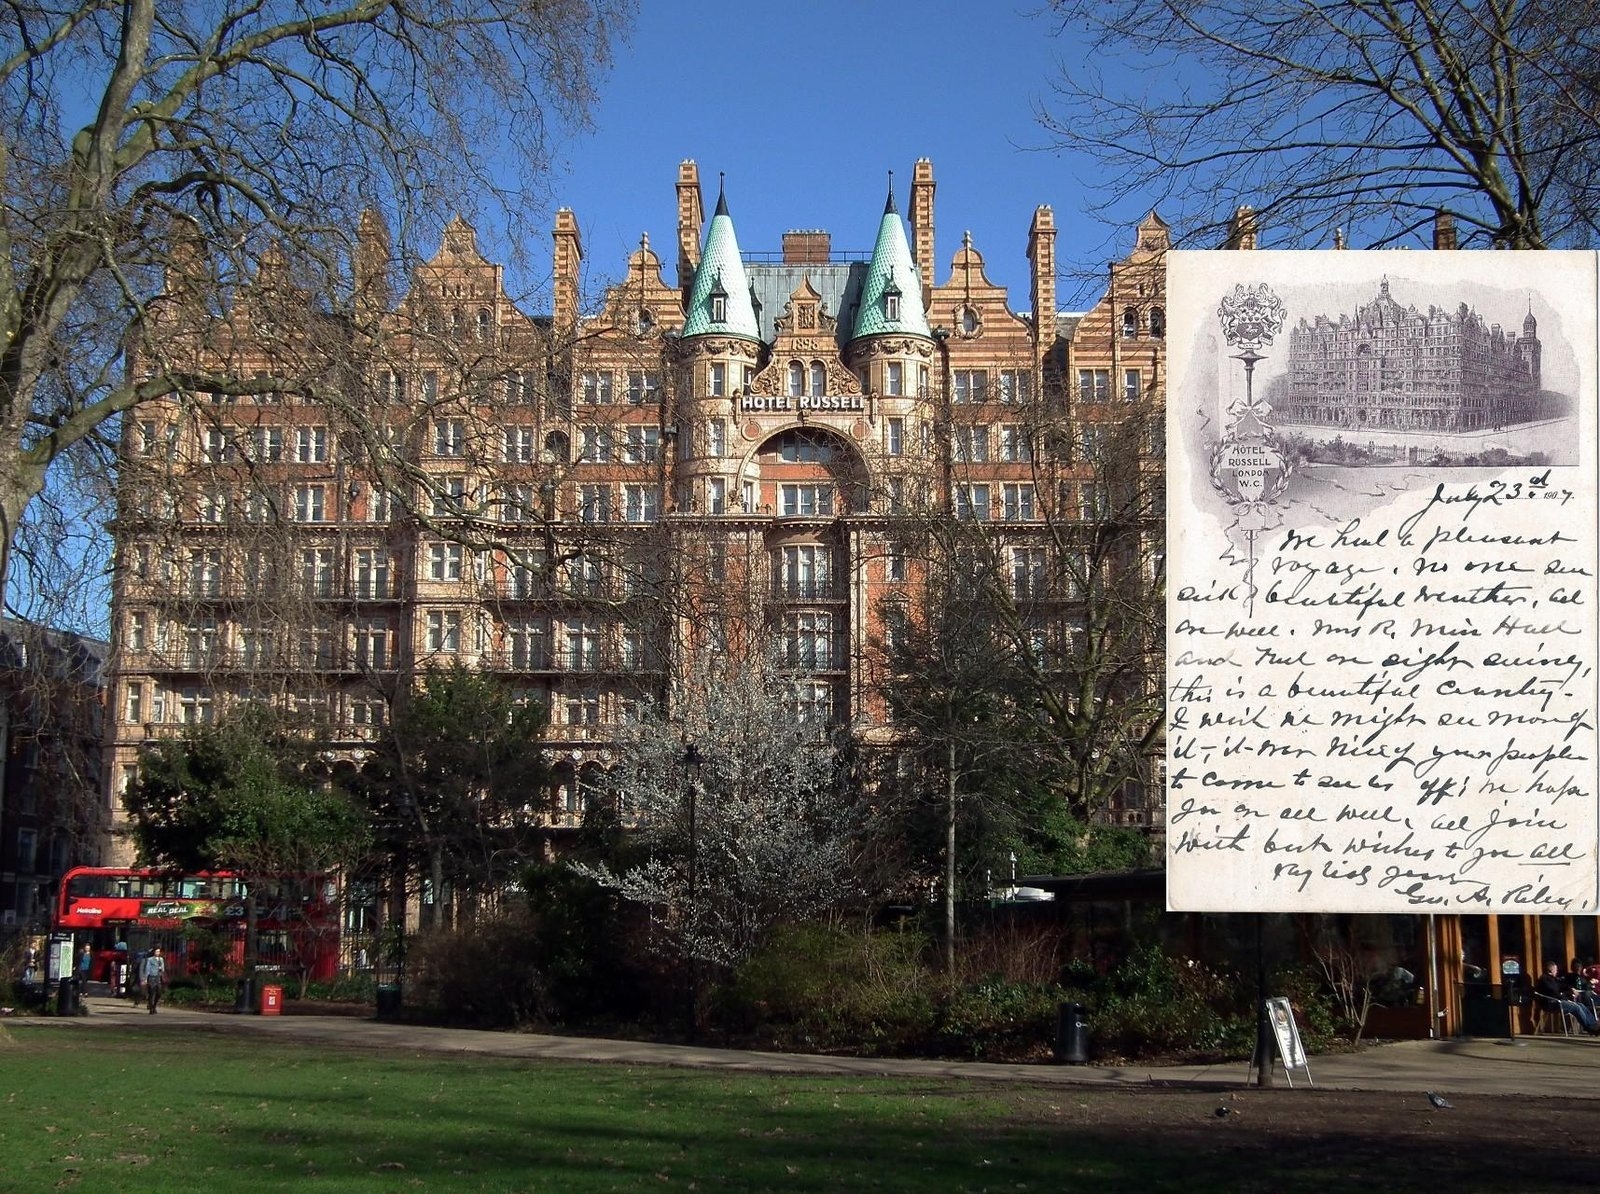 1898
HOTEL RUSSELL
HOTEL
RUSSELL
LONDON
W.C.
July 23rd 1907.
We had a pleasant
voyage, no one sea
sick, beautiful weather, all
are well. Mrs R. Miss Hall
and are sight seeing,
this is a beautiful country-
I wish we might see more of
it, it was nice of your people
to come to see us off; we hope
you are all well, all join
with best wishes to you all
Geo. A. Riley.
Metroline
REAL DEAL
£3